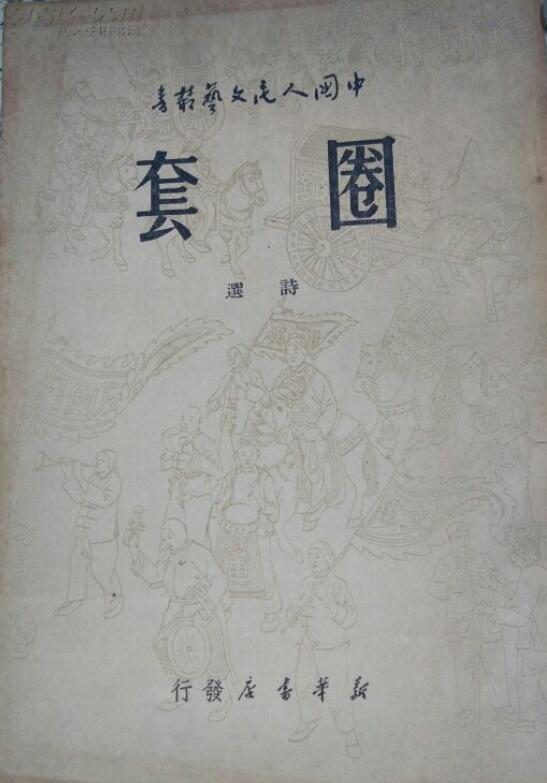 中国人民文藝叢書
圈套
詩選
新華書店發行